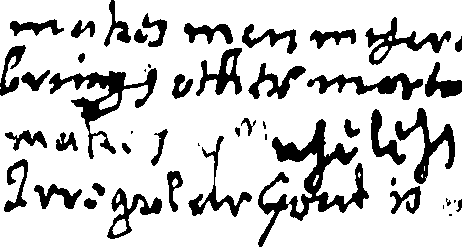 makes men miser
brings other morta
makes
Irregular Gout is